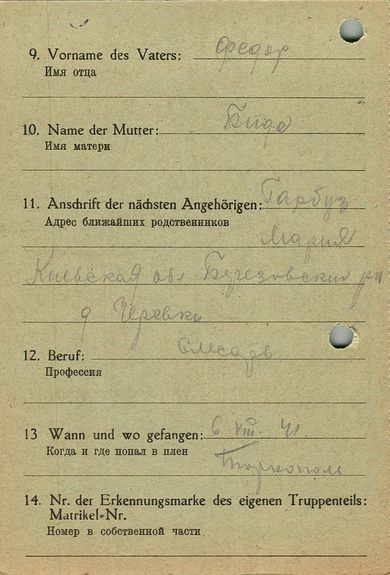 9. Vorname des Vaters: Федор
Имя отца
10. Name der Mutter: Бида
Имя матери
11. Anschrift der nächsten Angehörigen: Гарбуз
Адрес ближайших родственников
Мария
Киевская обл Березовский рн
д Черевки
12. Beruf: Слесарь
Профессия
13 Wann und wo gefangen: 6. VIII. 41.
Когда и где попал в плен
14. Nr. der Erkennungsmarke des eigenen Truppenteils:
Matrikel-Nr.
Номер в собственной части